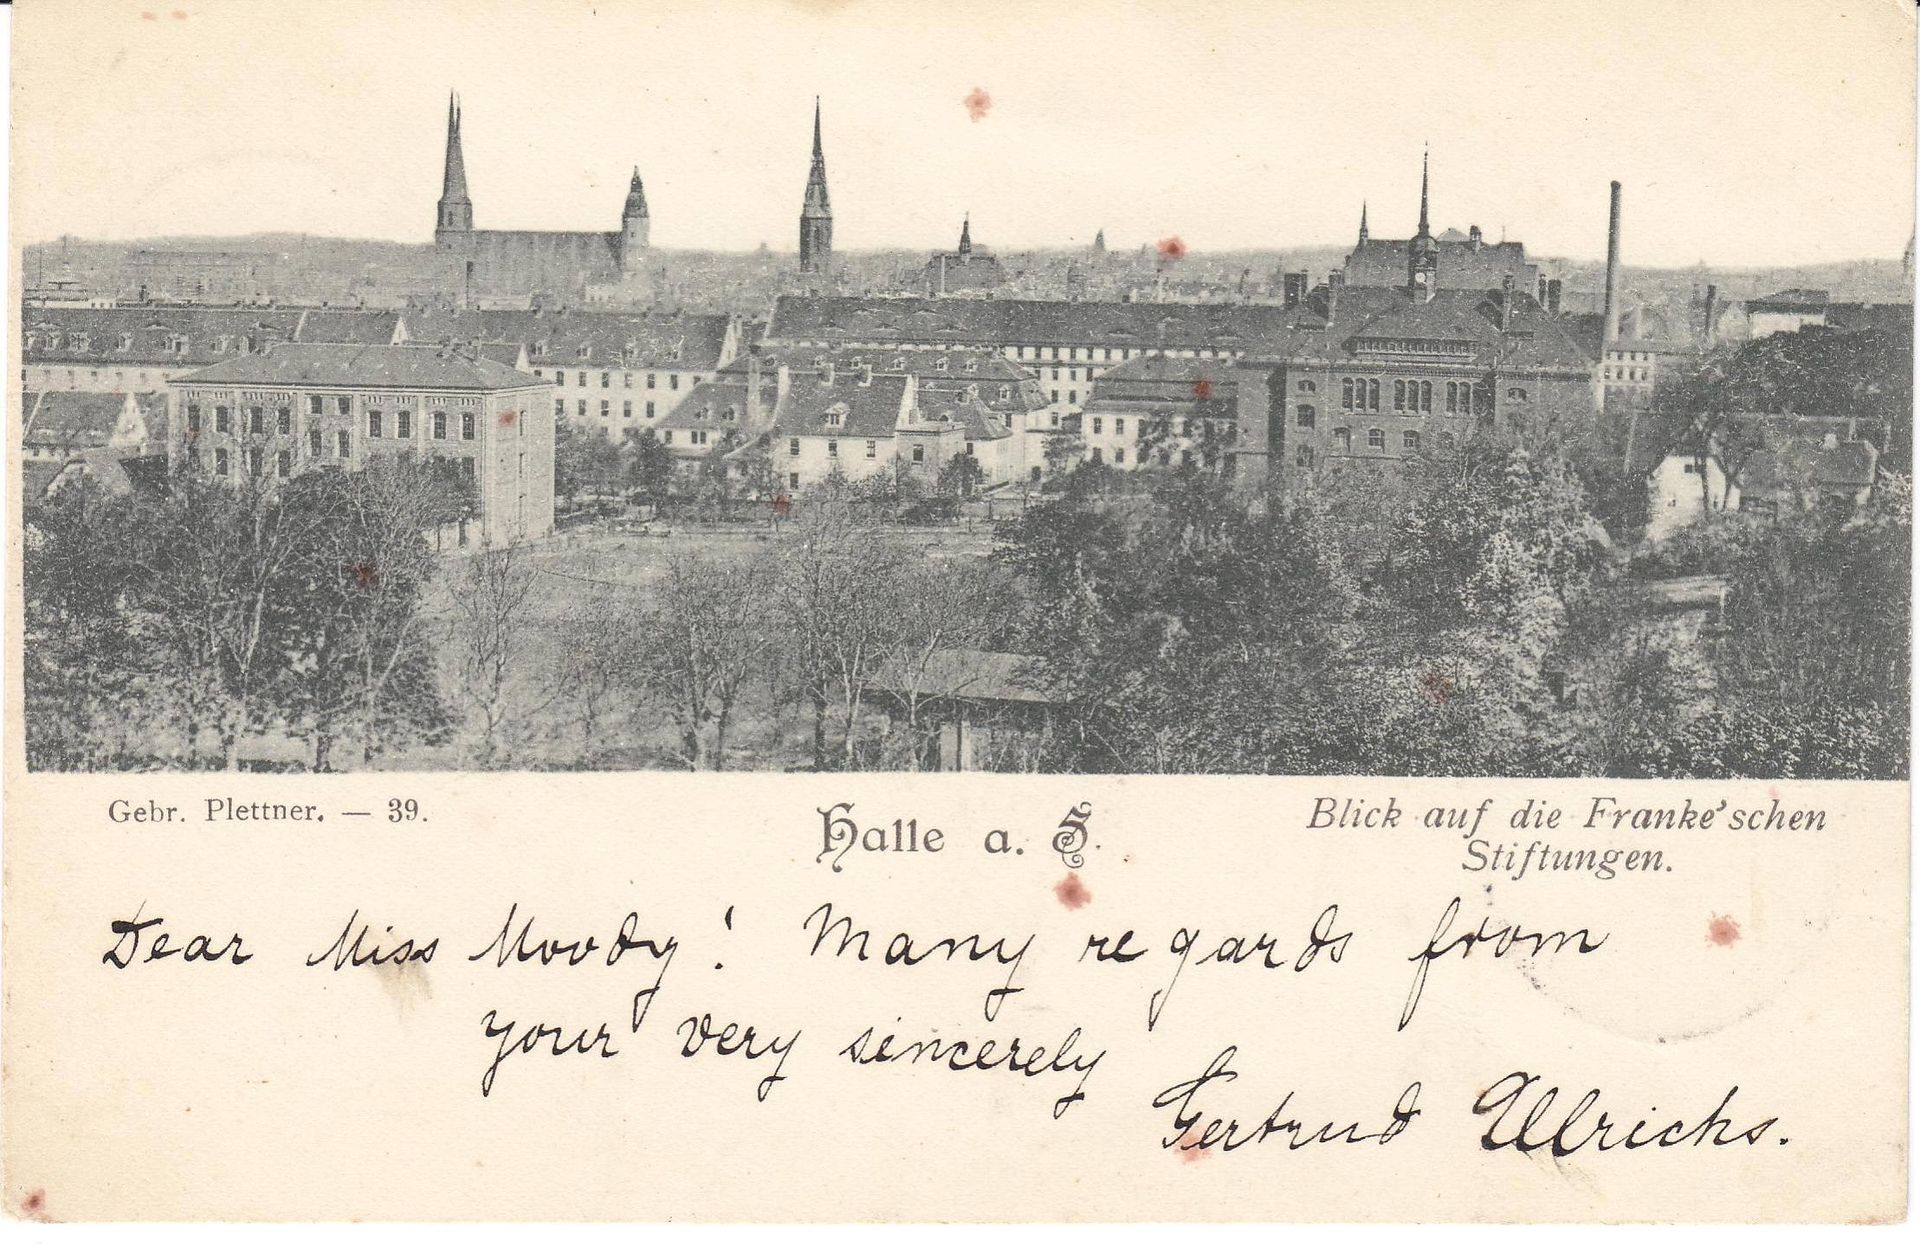 Gebr. Plettner. — 39.
Halle a. S.
Blick auf die Franke'schen
Stiftungen.
Dear Miss Moody! Many regards from
your very sincerely
Gertrud Ullrichs.